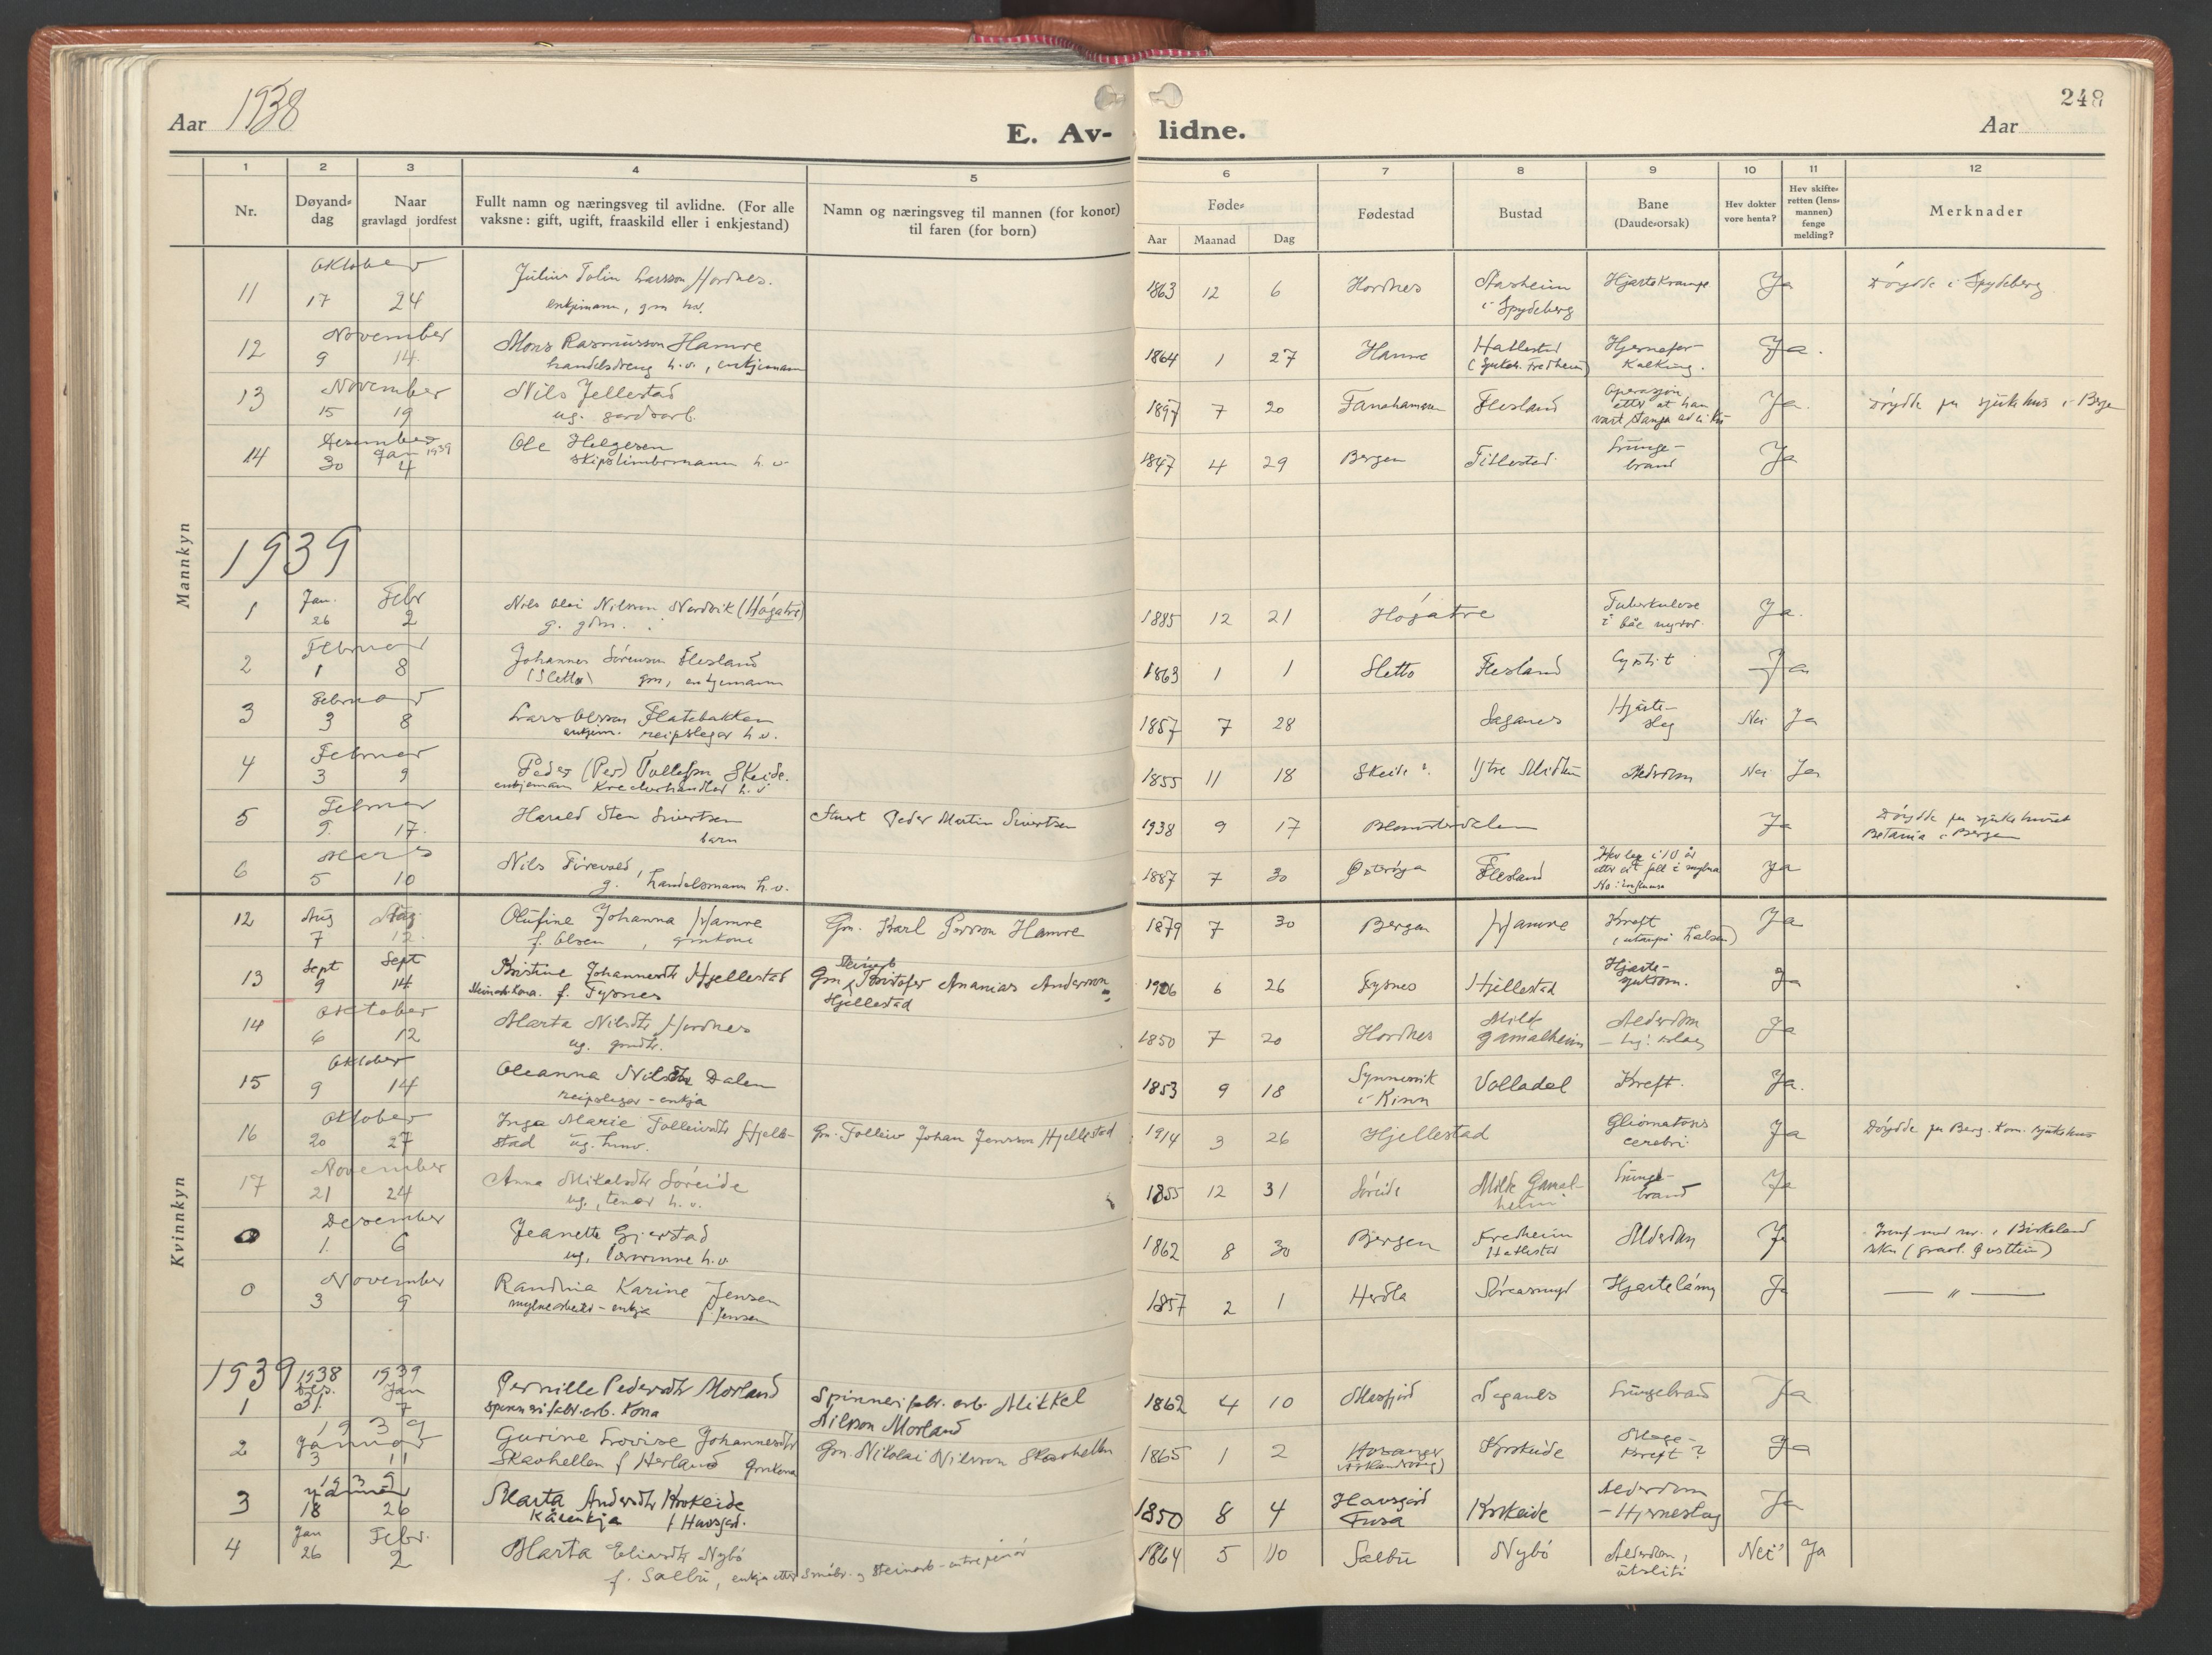 248
Aar 1938
E. Av- lidne.
Aar
1 2 3 4 5 6 7 8 9 10 11 12
Nr.
Døyand-dag
Naar
gravlagd jordfest
Fullt namn og næringsveg til avlidne. (For alle
vaksne: gift, ugift, fraaskild eller i enkjestand)
Namn og næringsveg til mannen (for konor)
til faren (for born)
Føde-
Aar Maanad Dag
Fødestad
Bustad
Bane
(Daude-orsak)
Hev dokter
vore henta?
Hev skifte-
retten (lens-
mannen)
fenge
melding?
Merknader
Mannkyn
Oktober
11 17 24 Julius Tolin Larsson Hordnes. 1863 12 6 Hordnes i Spydeberg Hjartekrampe Ja Døydde i Spydeberg
enkjemann, gm h.v.
November
12 9 14. Mons Rasmusson Hamre 1864 1 27 Hamre Hatlestad Hjernefor- Ja.
handelsdreng h.v., enkjemann (Sjukeh. Fredheim) kalking.
November
13 15 19 Nils Jellestad 1897 7 20 Fanahamaren Flesland Operasjon Ja. Døydde på sjukehus i Bergen
ug. gardsarb. etter at han vart stanga
Desember Jan 1939
14 30 4 Ole Helgesen 1847 4 29 Bergen Titlestad Lunge- Ja
skipstimbermann h.v. brand
1939
Jan. Febr
1 26 2 Nils Olai Nilsson Nordvik (Høgatre) 1885 12 21 Høgatre Tuberkulose Ja.
g. gdm. i båe nyror.
Februar
2 1 8 Johannes Sørenson Flesland 1863 1 1 Sletto Flesland Cystit Ja
(Sletto) gm, enkjemann
Februar
3 3 8 Lars Olsson Flatebakken 1857 7 28 Søganes Hjarte- Nei Ja
enkjem. reipslegar h.v. slag
Februar
4 3 9 Peder (Per) Tollefsn Skeide. 1855 11 18 Skeide Ytre Midtun Alderdom Nei Ja
enkjemann Kreaturhandlar h.v
Februar
5 9. 17. Harald Sten Sivertsen Peder Martin Sivertsen 1938 9 17 Blomsterdalen Ja Døydde på sjukehuset
barn Betania i Bergen
Mars
6 5 10 Nils Tirevold, 1887 7 30 Østerøya Flesland Hev lege i 10 år Ja
g. handelsmann h.v. etter eit fall i mylna
No: influensa
Kvinnkyn
Aug Aug
12 7 12. Olufine Johanna Hamre Gm. Karl Persson Hamre 1879 7 30 Bergen Hamre Kreft Ja
f. Olsen, gmkone (utanpå halsen)
Sept Sept Steinarb
13 9 14 Kristine Johannesdtr Hjellestad Gm Kristofer Ananias Andersson 1906 6 26 Tysnes Hjellestad Hjarte- Ja
f. Tysnes Hjellestad sjukdom.
Oktober
14 6 12 Marta Nilsdtr Hordnes 1850 7 20 Hordnes Milde Alderdom Ja
ug. gmdtr. gamalheim
Oktober
15 9 14 Oleanna Nilsdtr Dalen 1853 9 18 Synnesvik Volladal Kreft. Ja.
reipslagar-enkja i Kinn
Oktober
16 20 27 Inga Marie Folleivsdtr Hjelle- Gm. Folleiv Johan Jensson Hjellestad 1914 3 26 Hjellestad Gliomatosis Ja Døydde på Berg. Kom. sjukehus
stad ug. husv. cerebri
November
17 21 24 Anna Mikalsdtr Søreide 1855 12 31 Søreide Milde Gamal- Lunge- Ja
ug., tenar h.v. heim brand
Desember
0 1. 6 Jeanette Gjerstad 1862 8 30 Bjergen Fredheim Alderdom Ja Jamf med nr. i Birkeland
ug, lærarinne h.v. Hatlestad
November
0 3 9 Randvia Karine Jensen 1857 2 1 Herdla Hjartelåmy Ja — " —
mylnearbeid-enkja f Jensen
1939 1938 1939
Des. Jan
1 31. 7 Pernille Pedersdtr Morland Spinneri fabr. arb. Mikkel 1862 4 10 Masfjord Søganes Lungebrand Ja
spinneri fabr. arb. kona Nilsson Morland
1939
Januar
2 3 11 Gurine Lovise Johannesdtr Gm. Nikolai Nilsson Skavhellen 1865 1 2 Hosanger Krokeide Mage- Ja
Skavhellen f Herland Gmkona kreft?
1939
Januar
3 18 26 Marta Andersdtr Krokeide 1850 8 4 Havsgård Krokeide Alderdom Ja
Kårenkja f Havsgård. Fusa – Hjerneslag
Jan Febr.
4 26 2 Marta Eliasdtr Nybø 1864 5 10 Sælbu Nybø Alderdom, Nei Ja
f. Sælbu, enkja etter småbr. og steinarb-entreprenør utsliti